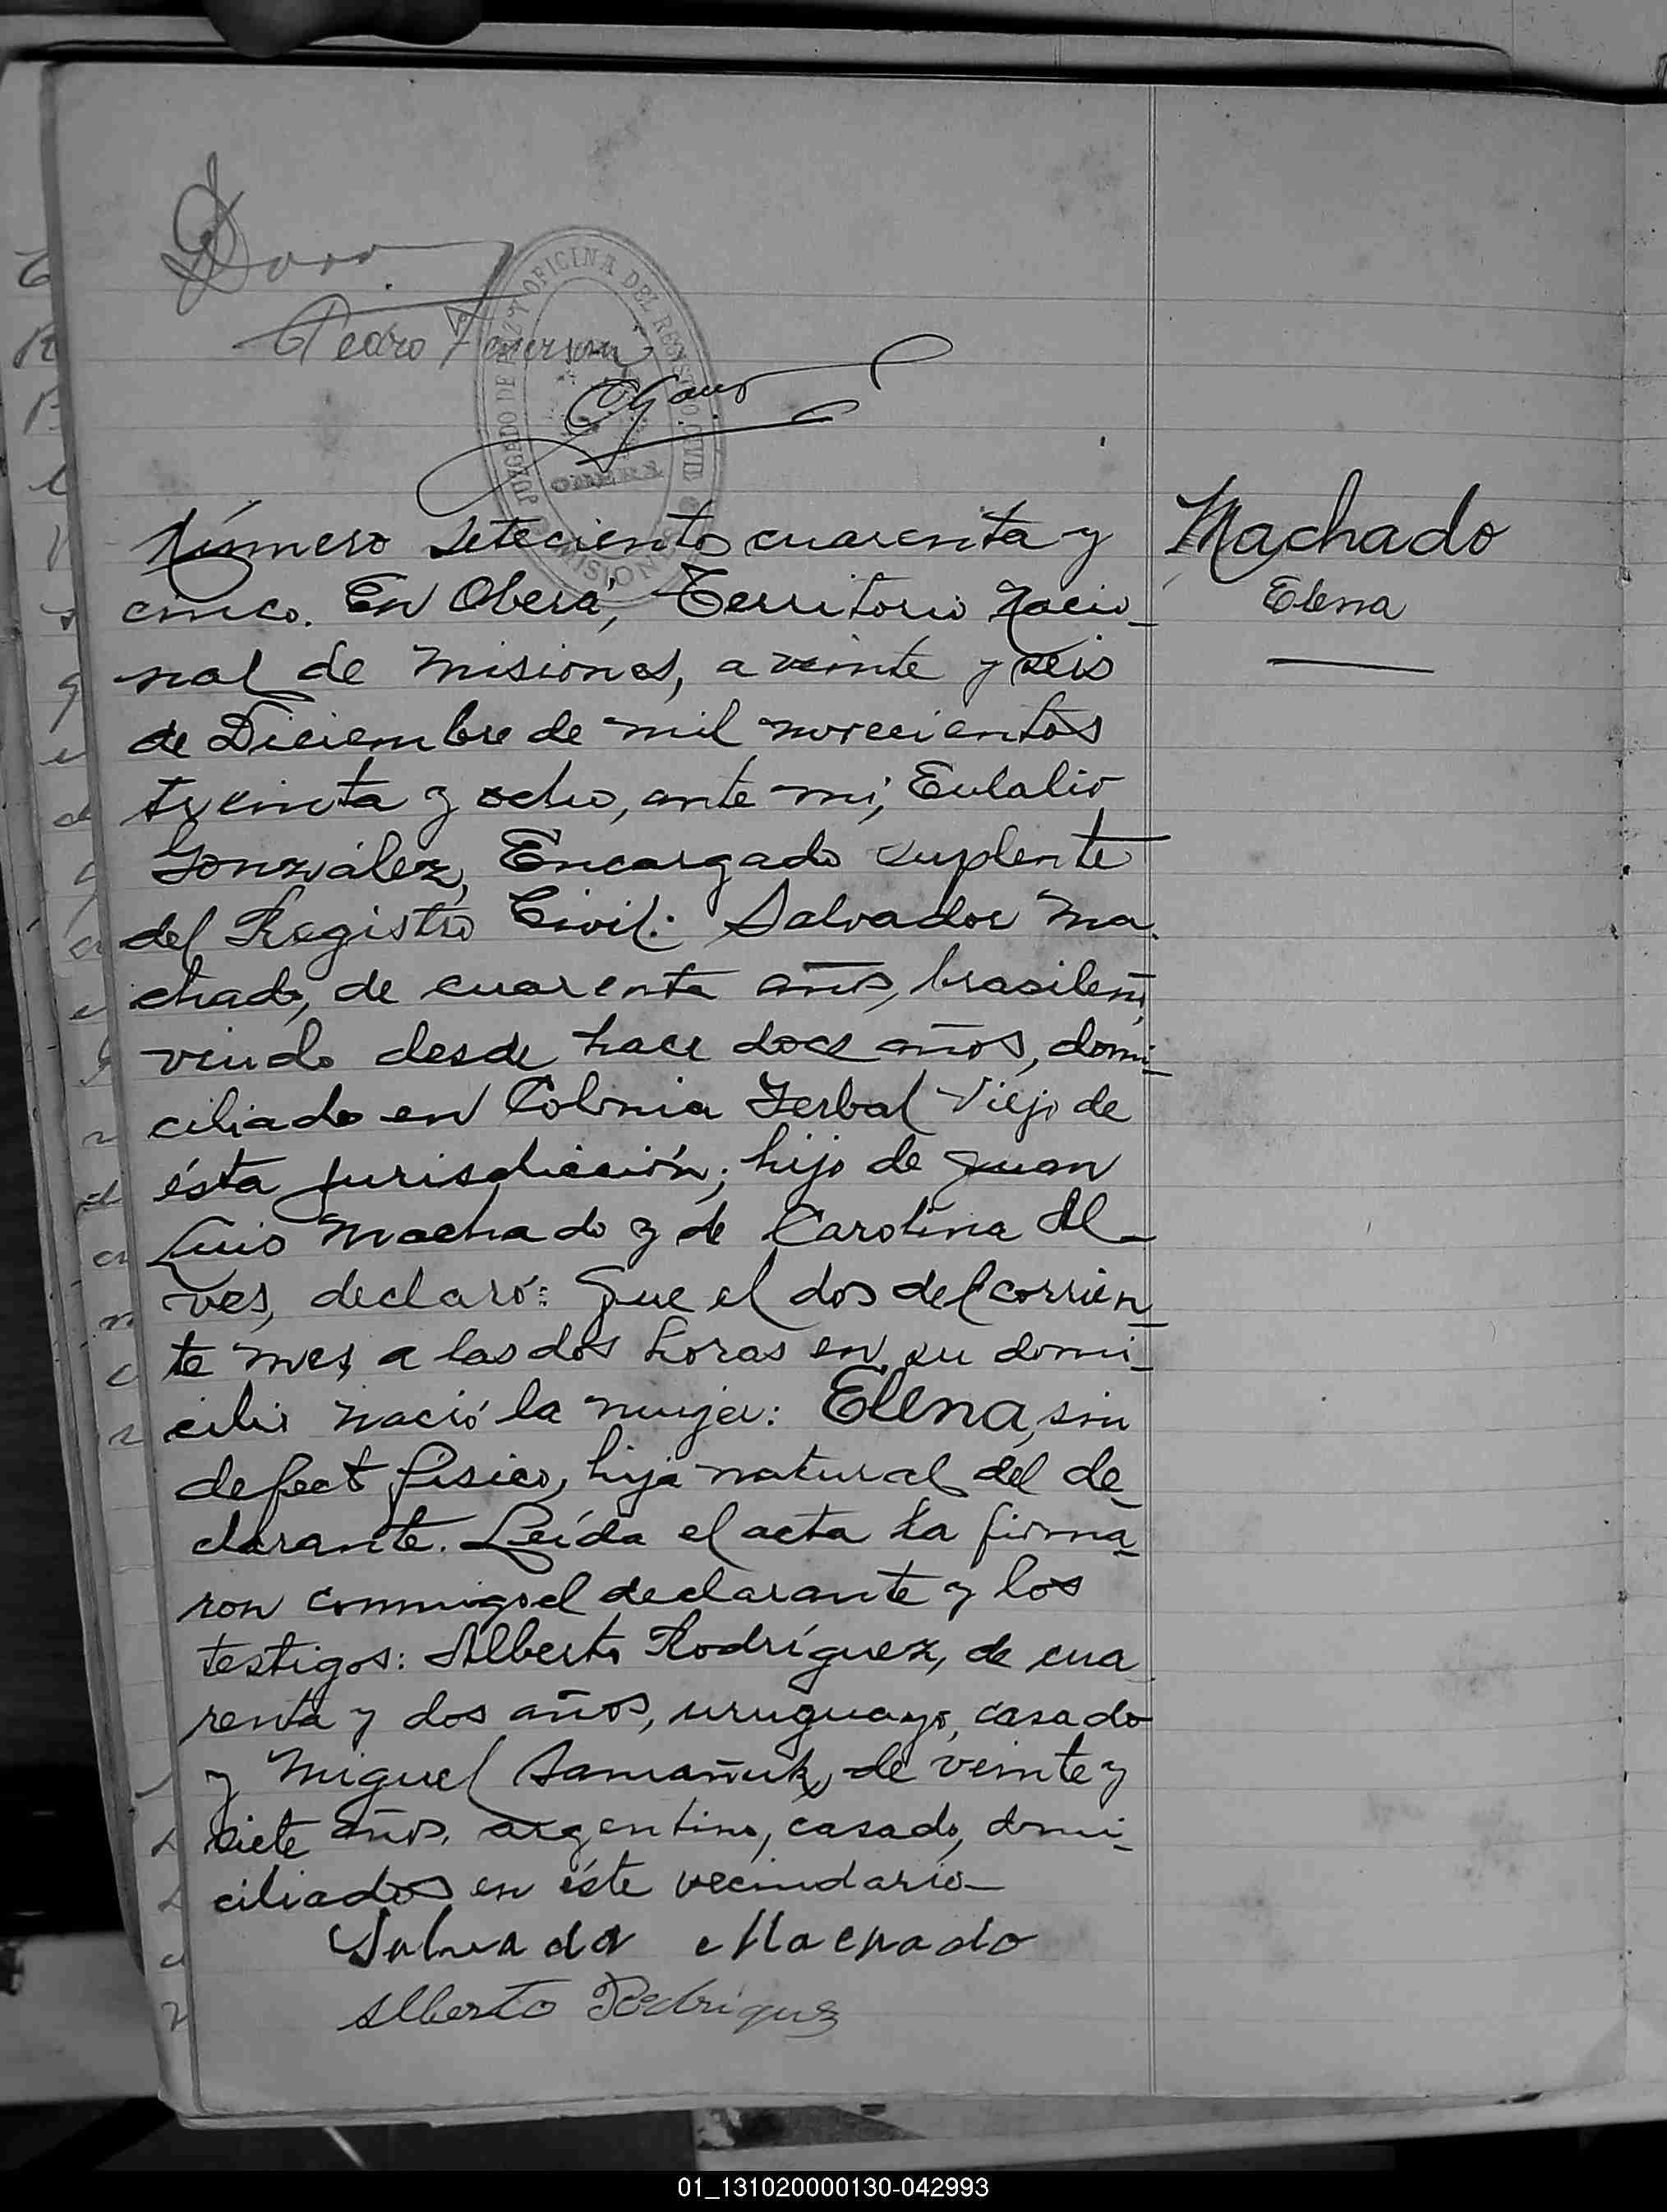 Pedro
OFICINA DEL REGISTRO CIVIL
JUZGADO DE PAZ Y
OBERA
MISIONES
Número setecientos cuarenta y
cinco. En Oberá, Territorio Nacio-
nal de Misiones, a veinte y seis
de Diciembre de mil novecientos
treinta y ocho, ante mi, Eulalio
González, Encargado suplente
del Registro Civil: Salvador Ma-
chado, de cuarenta años, brasileño,
viudo desde hace doce años, domi-
ciliado en Colonia Yerbal Viejo de
ésta jurisdicción; hijo de Juan
Luis Machado y de Carolina Al-
ves, declaró: Que el dos del corrien-
te mes, a las dos horas en su domi-
cilio nació la mujer: Elena, sin
defecto físico, hija natural del de-
clarante. Leída el acta la firma-
ron conmigo el declarante y los
testigos: Alberto Rodríguez, de cua
renta y dos años, uruguayo, casado
y Miguel Samañuk, de veinte y
siete años, argentino, casado, domi-
ciliados en éste vecindario-
Salvador Machado
Alberto Rodriguez
Machado
Elena
01_131020000130-042993